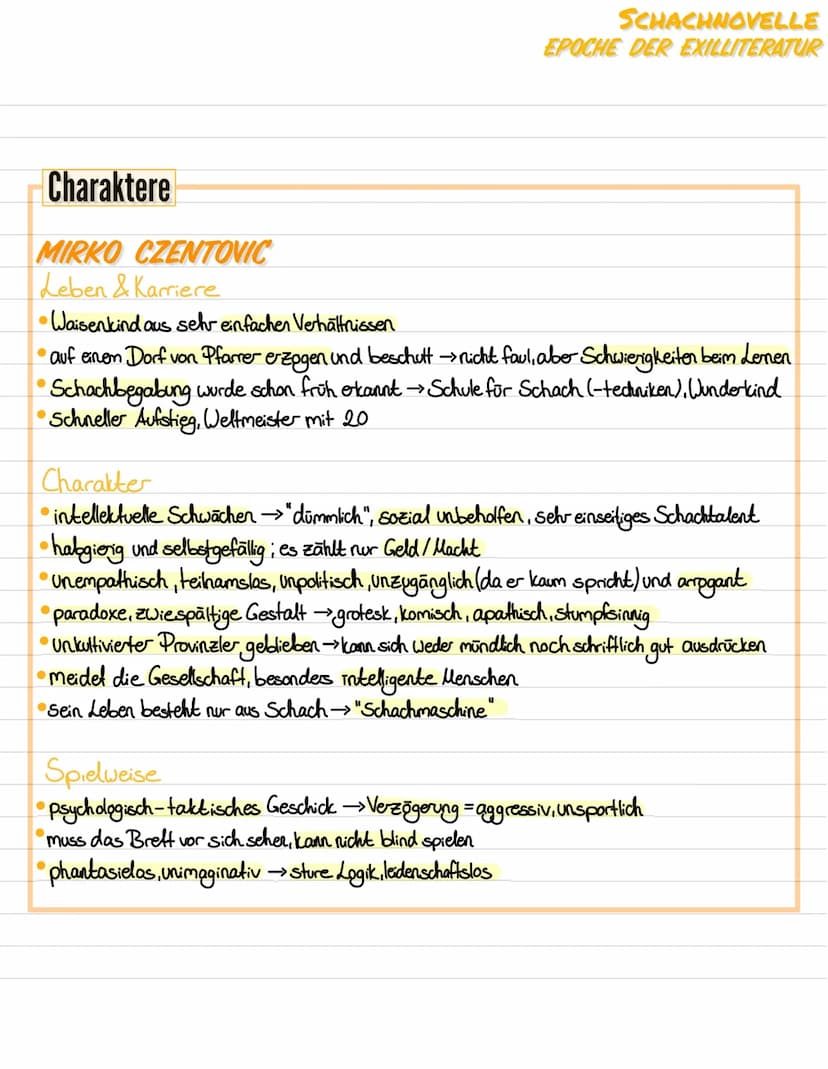 SCHACHNOVELLE
EPOCHE DER EXILLITERATUR
Charaktere
MIRKO CZENTOVIC
Leben & Karriere
• Waisenkind aus sehr einfachen Verhältnissen
• auf einem Dorf von Pfarrer erzogen und beschult → nicht faul, aber Schwierigkeiten beim Lernen
• Schachbegabung wurde schon früh erkannt → Schule für Schach (-techniken), Wunderkind
• Schneller Aufstieg, Weltmeister mit 20
Charakter
• intellektuelle Schwächen → "dümmlich", sozial unbeholfen, sehr einseitiges Schachtalent
• habgierig und selbstgefällig; es zählt nur Geld/Macht
• unempathisch, teilnamslos, unpolitisch, unzugänglich (da er kaum spricht) und arrogant
• paradoxe, zwiespältige Gestalt → grotesk, komisch, apathisch, stumpfsinnig
• unkultivierter Provinzler geblieben → kann sich weder mündlich noch schriftlich gut ausdrücken
• meidet die Gesellschaft, besonders intelligente Menschen
• Sein Leben besteht nur aus Schach → "Schachmaschine"
Spielweise
• psychologisch-taktisches Geschick → Verzögerung = aggressiv, unsportlich
• muss das Brett vor sich sehen, kann nicht blind spielen
• phantasielos, unimaginativ → sture Logik, leidenschaftslos